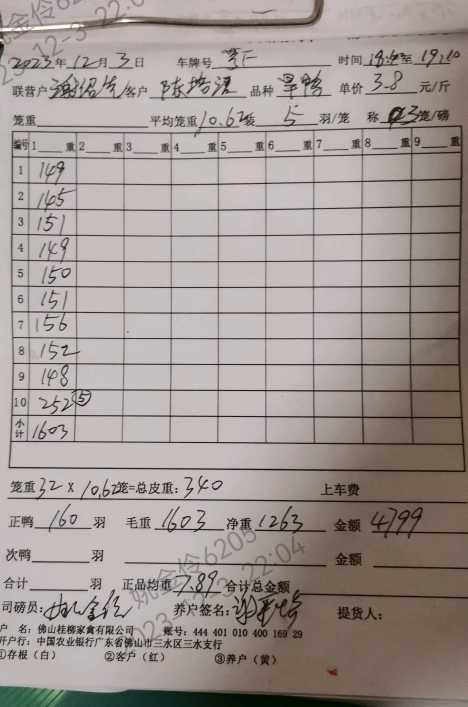 2023年12月3日 车牌号 时间 至19:20
联营户 客户 陈 品种 旱鸭 单价 3.8 元/斤
笼重 平均笼重10.62 装 5 羽/笼 称 3笼/磅
编号 1 重 2 重 3 重 4 重 5 重 6 重 7 重 8 重 9 重
1 149
2 145
3 151
4 149
5 150
6 151
7 156
8 152
9 148
10 252 (5)
小计 1603
笼重32×10.62笼=总皮重:340 上车费
正鸭 160 羽 毛重 1603 净重 1263 金额 4799
次鸭 羽 金额
合计 羽 正品均重 7.89 合计总金额
司磅员: 姚金伶 养户签名: 提货人:
户 名:佛山桂柳家禽有限公司 账号:444 401 010 400 169 29
开户行:中国农业银行广东省佛山市三水区三水支行
①存根(白) ②客户(红) ③养户(黄)
姚金伶6205
023-12-3 22:04